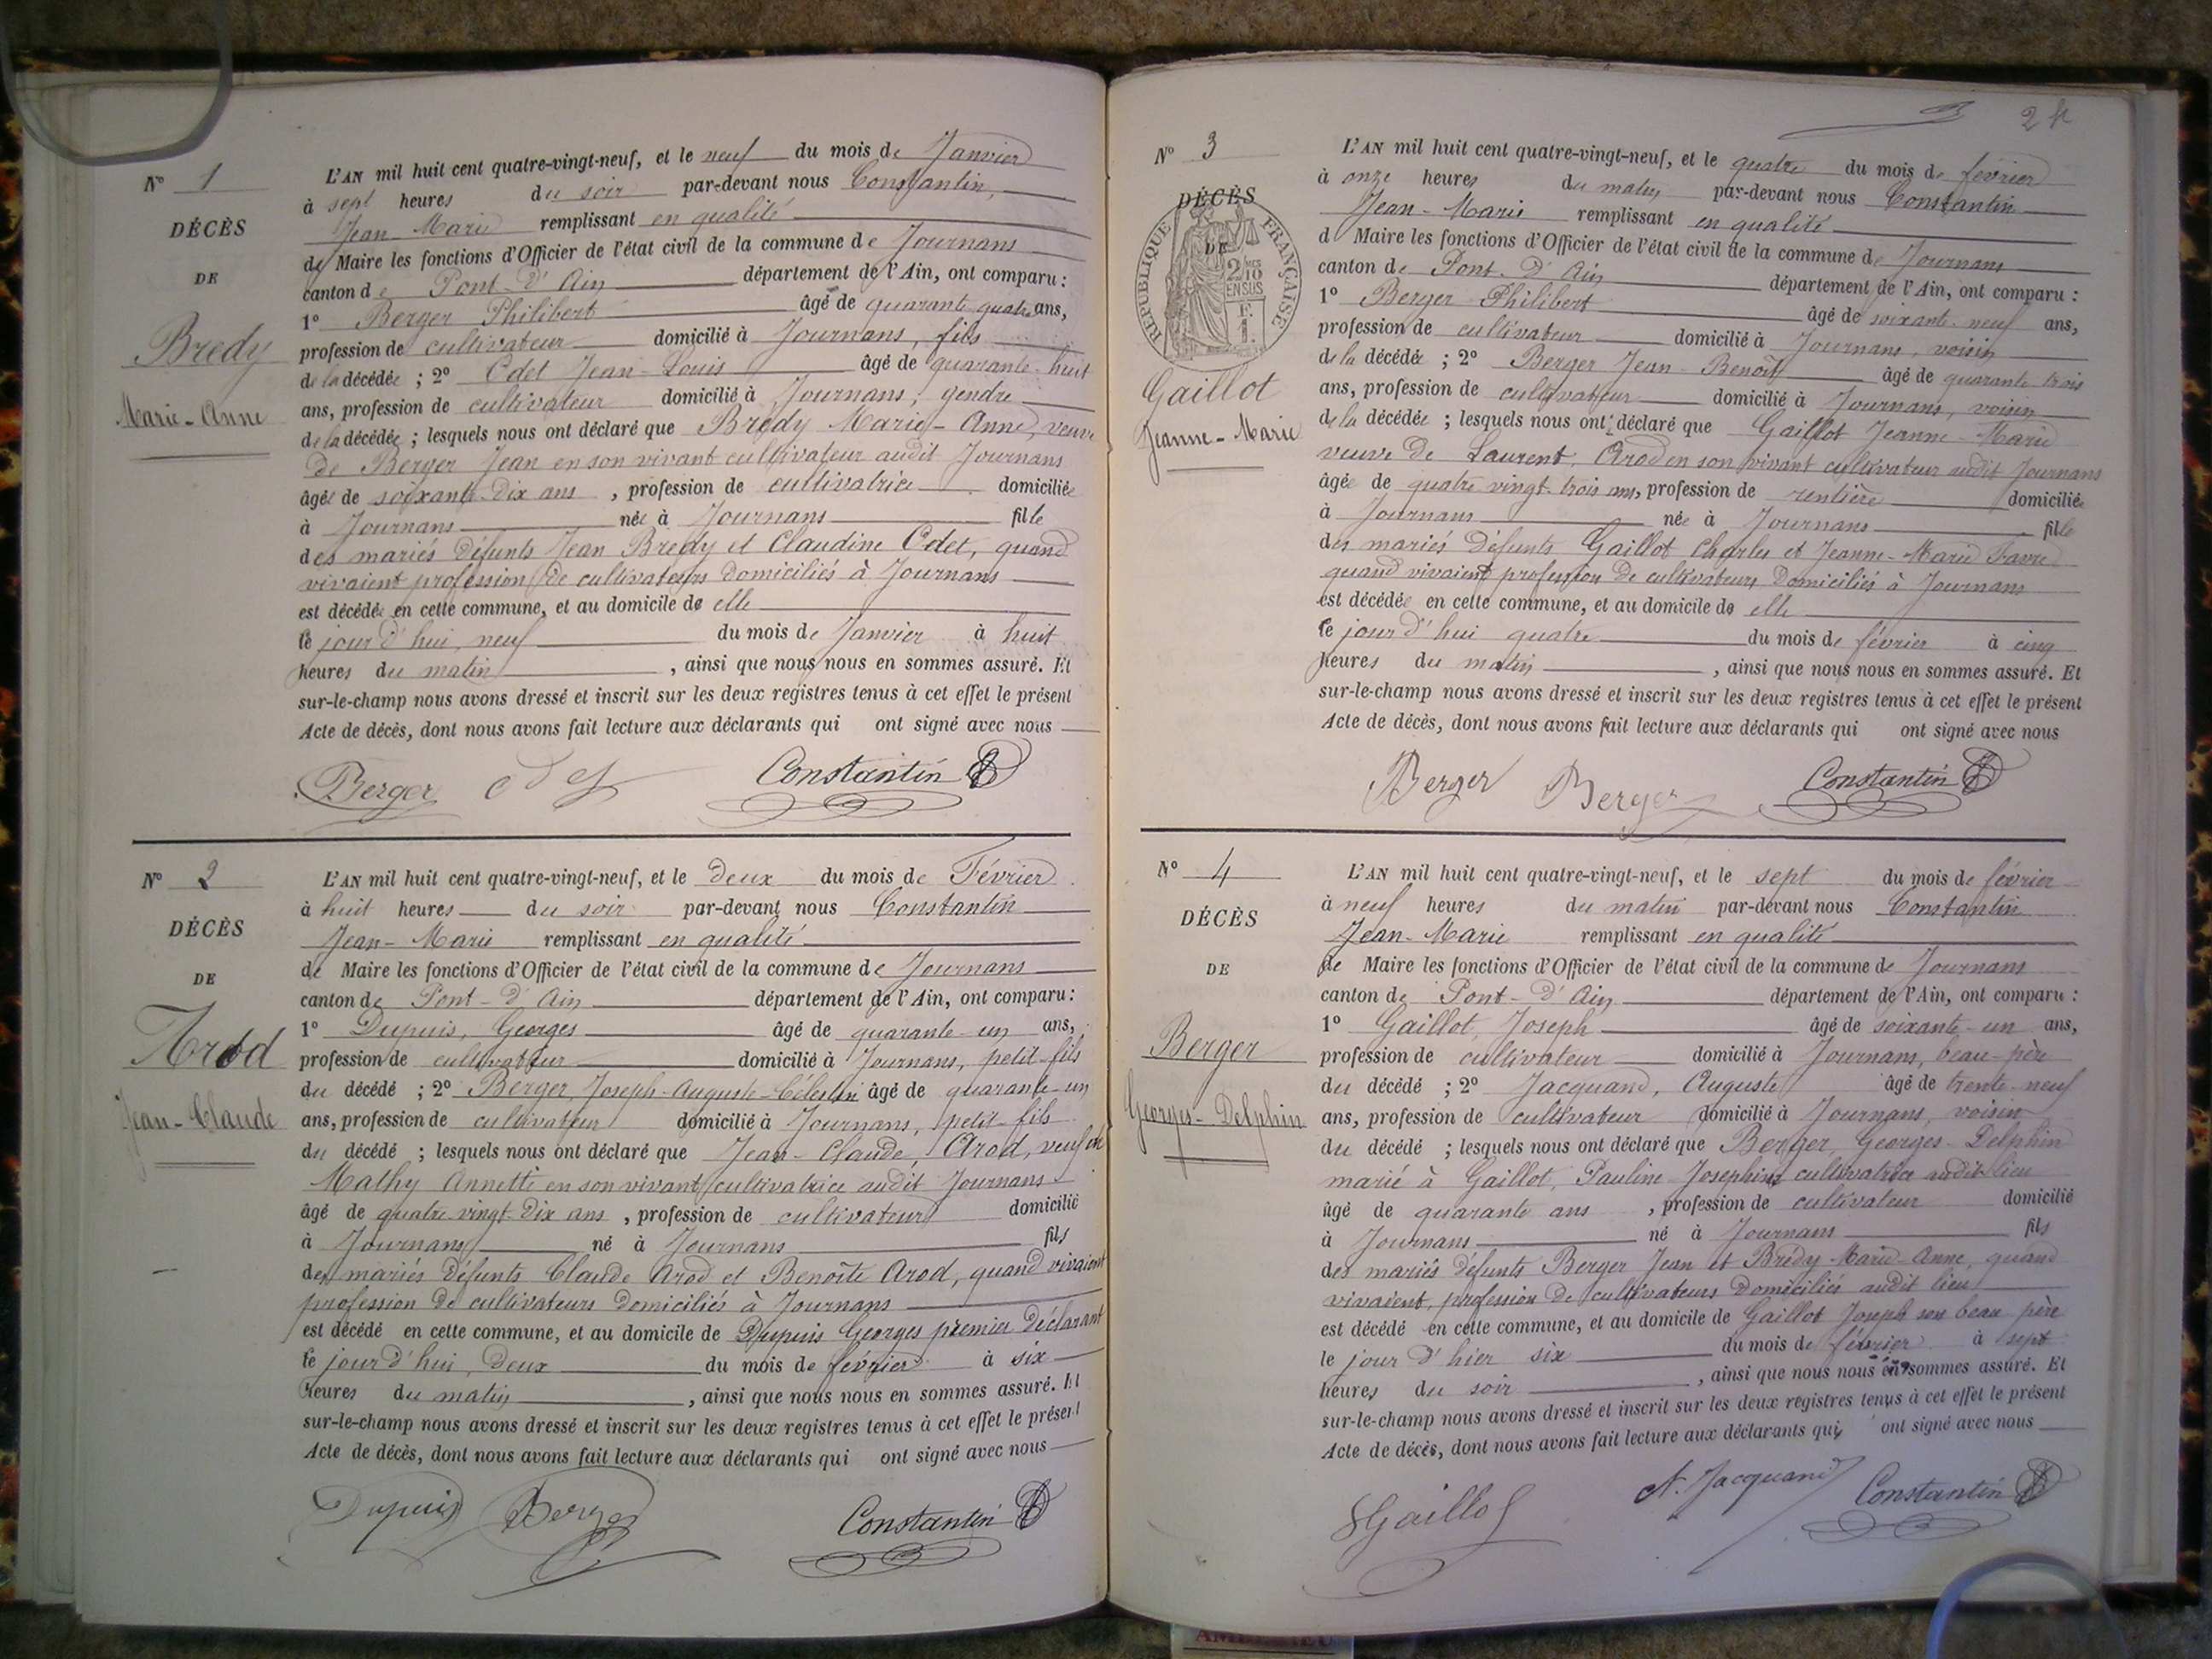 N° 1
DÉCÈS
DE
Bredy
Marie-Anne
L'AN mil huit cent quatre-vingt-neuf, et le neuf du mois de Janvier
à sept heures du soir par-devant nous Constantin,
Jean Marie remplissant en qualité
de Maire les fonctions d'Officier de l'état civil de la commune de Journans
canton de Pont-d'Ain département de l'Ain, ont comparu :
1° Berger Philibert âgé de quarante quatre ans,
profession de cultivateur domicilié à Journans, fils
de la décédée ; 2° Odet Jean-Louis âgé de quarante-huit
ans, profession de cultivateur domicilié à Journans, gendre
de la décédée ; lesquels nous ont déclaré que Bredy Marie-Anne, veuve
de Berger Jean en son vivant cultivateur audit Journans
âgée de soixante-dix ans , profession de cultivatrice domiciliée
à Journans née à Journans fille
des mariés défunts Jean Bredy et Claudine Odet, quand
vivaient profession de cultivateurs domiciliés à Journans
est décédée en cette commune, et au domicile de elle
le jour d'hui, neuf du mois de Janvier à huit
heures du matin , ainsi que nous nous en sommes assuré. Et
sur-le-champ nous avons dressé et inscrit sur les deux registres tenus à cet effet le présent
Acte de décès, dont nous avons fait lecture aux déclarants qui ont signé avec nous
Berger Odet Constantin
N° 2
DÉCÈS
DE
Arod
Jean-Claude
L'AN mil huit cent quatre-vingt-neuf, et le deux du mois de Février
à huit heures du soir par-devant nous Constantin
Jean-Marie remplissant en qualité
de Maire les fonctions d'Officier de l'état civil de la commune de Journans
canton de Pont-d'Ain département de l'Ain, ont comparu :
1° Dupuis, Georges âgé de quarante-un ans,
profession de cultivateur domicilié à Journans, petit-fils
du décédé ; 2° Berger, Joseph-Auguste-Célestin âgé de quarante-un
ans, profession de cultivateur domicilié à Journans, petit-fils
du décédé ; lesquels nous ont déclaré que Jean-Claude, Arod, veuf de
Mathy Annette en son vivant cultivatrice audit Journans
âgé de quatre vingt-dix ans , profession de cultivateur domicilié
à Journans né à Journans fils
des mariés défunts Claude Arod et Benoîte Arod, quand vivaient
profession de cultivateurs domiciliés à Journans
est décédé en cette commune, et au domicile de Dupuis Georges premier déclarant
le jour d'hui, deux du mois de février à six
heures du matin , ainsi que nous nous en sommes assuré. Et
sur-le-champ nous avons dressé et inscrit sur les deux registres tenus à cet effet le présent
Acte de décès, dont nous avons fait lecture aux déclarants qui ont signé avec nous
Dupuis Berger Constantin
N° 3
DÉCÈS
DE
RÉPUBLIQUE FRANÇAISE
2/10 MES
EN SUS
F.
1.
Gaillot
Jeanne-Marie
L'AN mil huit cent quatre-vingt-neuf, et le quatre du mois de février
à onze heures du matin par-devant nous Constantin
Jean-Marie remplissant en qualité
d Maire les fonctions d'Officier de l'état civil de la commune de Journans
canton de Pont-d'Ain département de l'Ain, ont comparu :
1° Berger Philibert âgé de soixante-neuf ans,
profession de cultivateur domicilié à Journans, voisin
de la décédée ; 2° Berger Jean-Benoît âgé de quarante trois
ans, profession de cultivateur domicilié à Journans, voisin
de la décédée ; lesquels nous ont déclaré que Gaillot Jeanne-Marie
veuve de Laurent, Arod en son vivant cultivateur audit Journans
âgée de quatre vingt-trois ans, profession de rentière domiciliée
à Journans née à Journans fille
des mariés défunts Gaillot Charles et Jeanne-Marie Favre
quand vivaient profession de cultivateurs domiciliés à Journans
est décédée en cette commune, et au domicile de elle
le jour d'hui quatre du mois de février à cinq
heures du matin , ainsi que nous nous en sommes assuré. Et
sur-le-champ nous avons dressé et inscrit sur les deux registres tenus à cet effet le présent
Acte de décès, dont nous avons fait lecture aux déclarants qui ont signé avec nous
Berger Berger Constantin
N° 4
DÉCÈS
DE
Berger
Georges-Delphin
L'AN mil huit cent quatre-vingt-neuf, et le sept du mois de février
à neuf heures du matin par-devant nous Constantin
Jean-Marie remplissant en qualité
de Maire les fonctions d'Officier de l'état civil de la commune de Journans
canton de Pont-d'Ain département de l'Ain, ont comparu :
1° Gaillot, Joseph âgé de soixante-un ans,
profession de cultivateur domicilié à Journans, beau-père
du décédé ; 2° Jacquand, Auguste âgé de trente-neuf
ans, profession de cultivateur domicilié à Journans, voisin
du décédé ; lesquels nous ont déclaré que Berger, Georges-Delphin
marié à Gaillot, Pauline Josephine cultivatrice audit lieu
âgé de quarante ans , profession de cultivateur domicilié
à Journans né à Journans fils
des mariés défunts Berger Jean et Bredy-Marie-Anne, quand
vivaient, profession de cultivateurs domiciliés audit lieu
est décédé en cette commune, et au domicile de Gaillot Joseph son beau père
le jour d'hier six du mois de février à sept
heures du soir , ainsi que nous nous en sommes assuré. Et
sur-le-champ nous avons dressé et inscrit sur les deux registres tenus à cet effet le présent
Acte de décès, dont nous avons fait lecture aux déclarants qui ont signé avec nous
Gaillot A. Jacquand Constantin